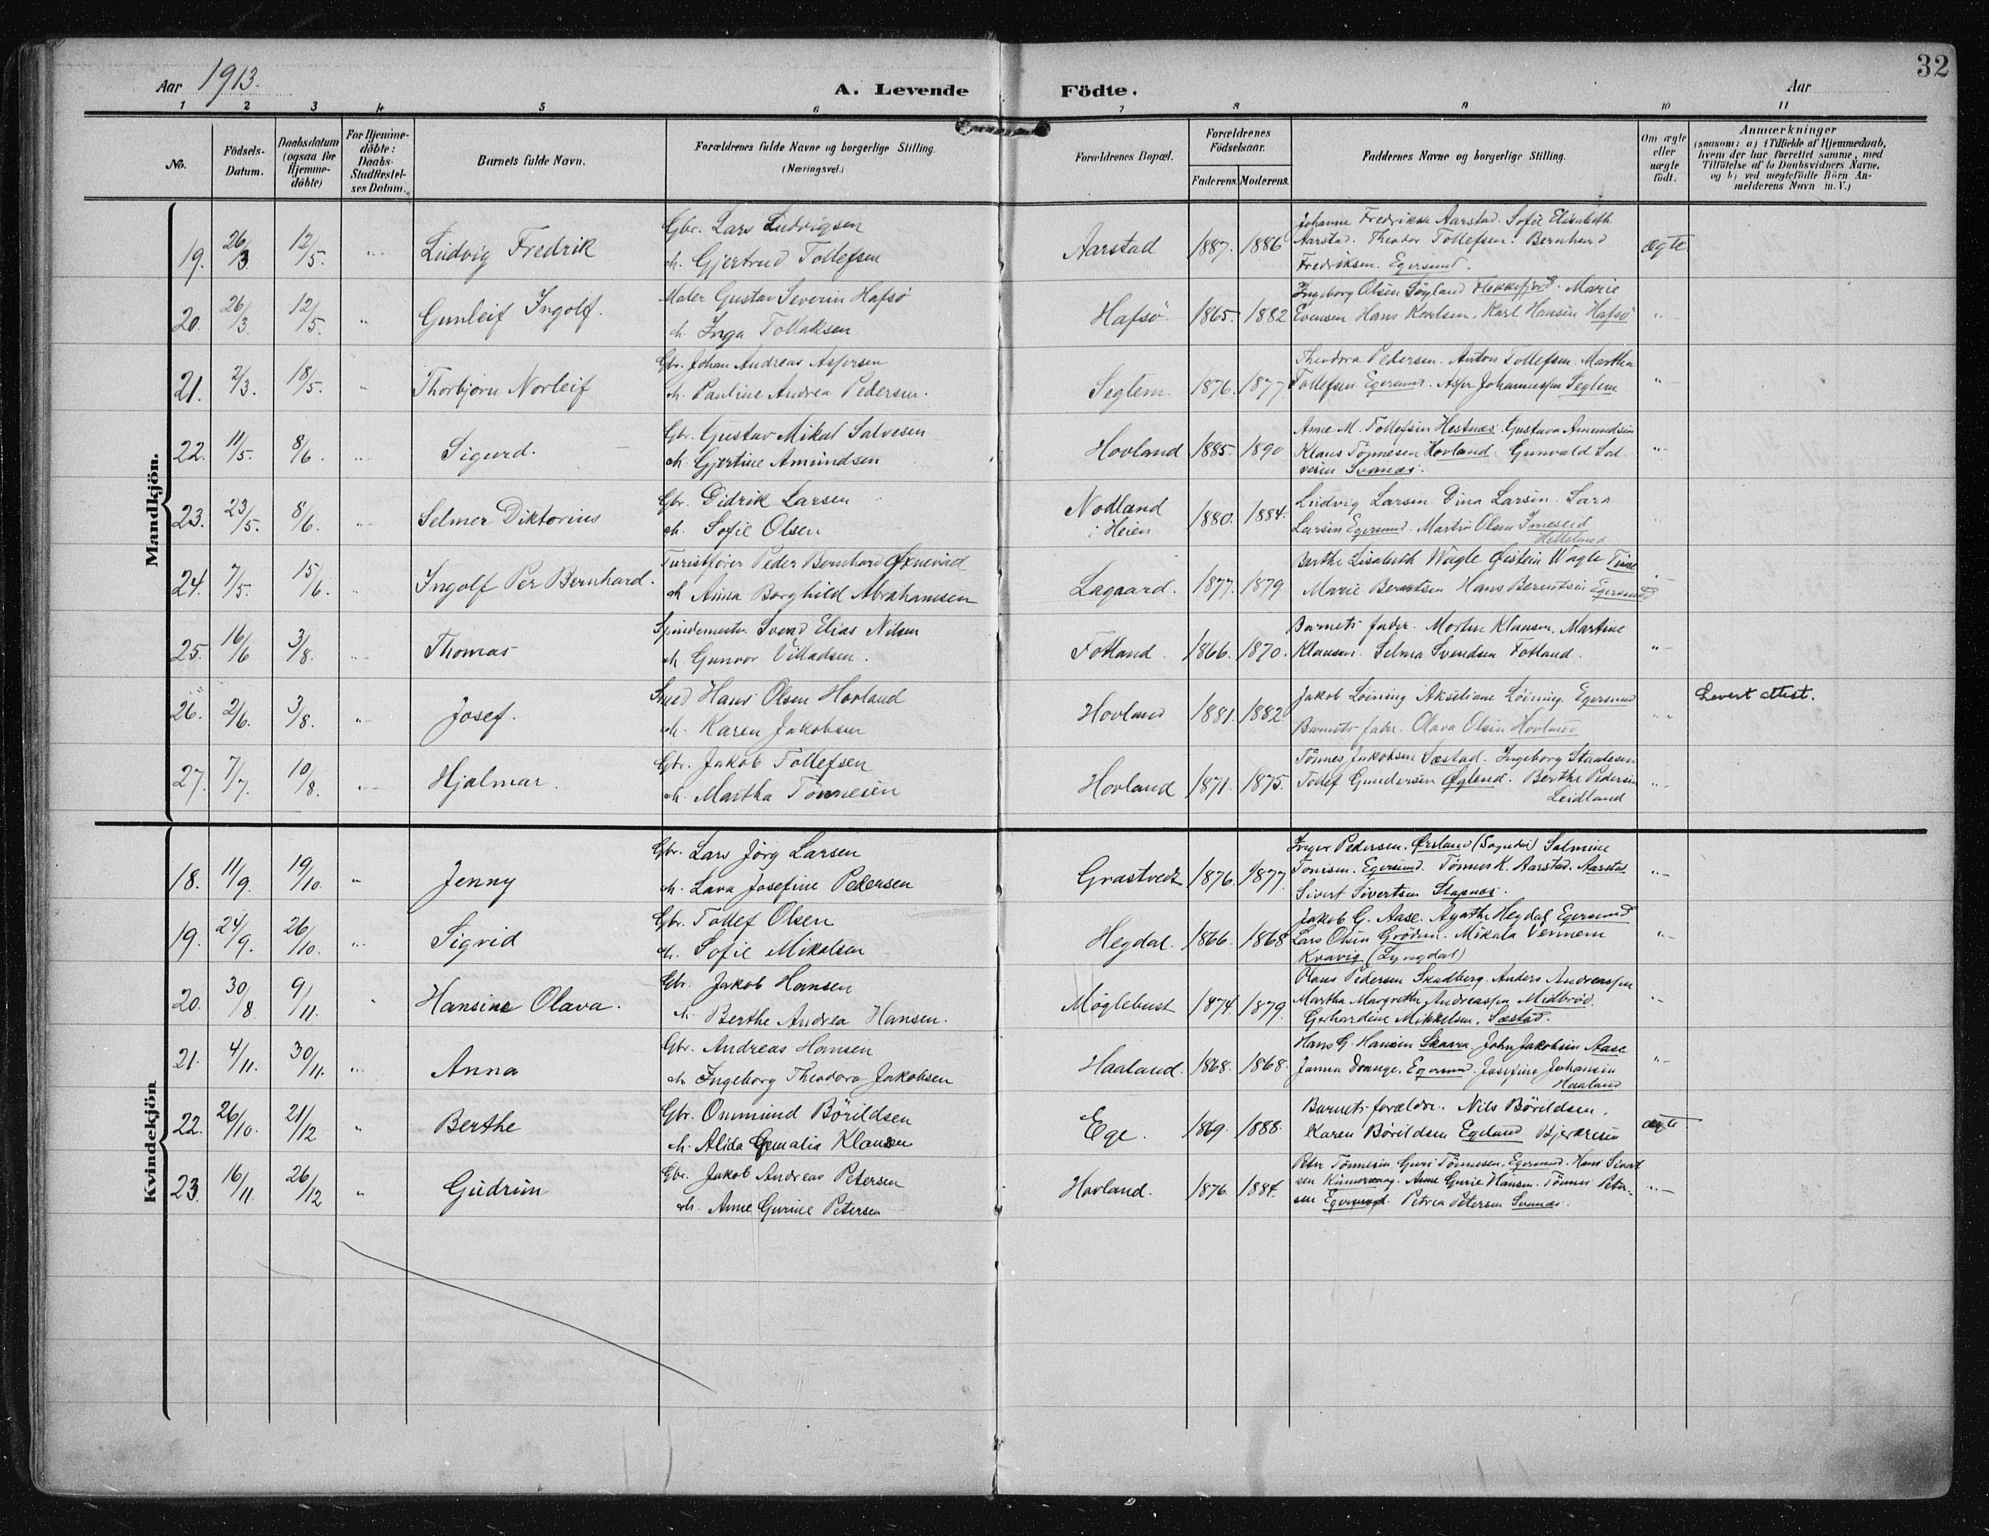 32
Aar 1913. A. Levende Födte. Aar
1 2 3 4 5 6 7 8 9 10 11
No. Födsels-Datum. Daabsdatum (ogsaa for Hjemme-döbte) For Hjemme-döbte: Daabs-Stadfæstel-ses Datum. Barnets fulde Navn. Forældrenes fulde Navne og borgerlige Stilling. (Næringsvei.) Forældrenes Bopæl. Forældrenes Födselsaar. Faderens. Moderens. Faddernes Navne og borgerlige Stilling. Om ægte eller uægte födt. Anmærkninger (saasom: a) i Tilfælde af Hjemmedaab, hvem der har forrettet samme, med Tilföielse af to Daabsvidners Navne, og b) ved uægtefödte Börn An-melderens Navn m. V.)
Mandkjön.
19. 26/3 12/5. Ludvig Fredrik Gbr. Lars Ludvigsen Aarstad 1887. 1886 Johanne Fredrikke Aarstad. Sofie Elisabeth ægte
h. Gjertrud Tollefsen Aarstad. Theodor Tollefsen. Bernhard
Fredriksen. Egersund.
20. 26/3. 12/5. " Gunleif Ingolf. Maler Gustav Severin Hafsø Hafsø. 1865. 1882 Ingeborg Olsen Søyland Flekkefjord. Marie "
h. Inga Tollaksen Evensen Hans Karlsen. Karl Hansen Hafsø
21. 2/3. 18/5. " Thorbjørn Norleif Gbr. Johan Andreas Aspersen Seglem. 1876. 1877 Theodora Pedersen. Anton Tollefsen. Martha "
h. Pauline Andrea Pedersen. Tollefsen Egersund. Asper Johannessen Seglem
22. 11/5. 8/6. " Sigurd. Gbr. Gustav Mikal Salvesen Hovland 1885. 1890 Anne M. Tollefsen Hestnæs. Gustava Amundsen "
h. Gjertine Amundsen Klaus Tønnesen Hovland. Gunvald Sal-
vesen Svanæs.
23. 23/5. 8/6. " Selmer Diktorius Gbr. Didrik Larsen Nodland i Heien 1880. 1884. Ludvig Larsen. Dina Larsen. Sara
h. Sofie Olsen Larsen Egersund. Martin Olsen
Helleland
24. 7/5. 15/6. " Ingolf Per Bernhard. Turistfører Peder Bernhard Lagaard. 1877. 1879. Berthe Lisabeth Wagle Øistein Wagle
h. Anna Borghild Abrahamsen Marie Berentsen Hans Berentsen Egersund
25. 16/6 3/8. " Thomas Spindemester Svend Elias Nilsen Fotland. 1866. 1870. Barnets fader. Morten Klausen. Martine "
h. Gunvor Villadsen. Klausen. Selma Svendsen Fotland.
26. 2/6. 3/8. " Josef. Smed Hans Olsen Hovland Hovland 1881. 1882 Jakob Løining Akseliane Løining. Egersund " Levert attest.
h. Karen Jakobsen Barnets fader. Olava Olsen Hovland
27. 7/7. 10/8. " Hjalmar. Gbr. Jakob Tollefsen Hovland 1871. 1875. Tønnes Jakobsen Sæstad. Ingeborg "
h. Martha Tønnesen Tollef Gundersen Øglend. Berthe Pedersen
Leidland
Kvindekjön
18. 11/9. 19/10. " Jenny Gbr. Lars Jörg Larsen Grastvedt 1876. 1877. Inger Pedersen. Ørsland (Sogndal) Salmine "
h. Lava Josefine Pedersen Tønnesen. Egersund. Tønnes K. Aarstad. Aarstad.
Sivert Sivertsen Slapnæs.
19. 24/9. 26/10. " Sigvid Gbr. Tollef Olsen Hegdal. 1866. 1868 Jakob G. Aase. Agathe Hegdal Egersund "
h. Sofie Mikalsen Lars Olsen Grøden. Mikala Vermem
Kvavig (Lyngdal)
20. 30/8 9/11. " Hansine Olava. Gbr. Jakob Hansen Møglebust 1874. 1879. Olaus Pedersen Skadberg. Anders Andreassen "
h. Berthe Andrea Hansen. Martha Margrethe Andreassen Midbrød.
Gerhardine Mikkelsen. Sæstad.
21. 4/11. 30/11. " Anna Gbr. Andreas Hansen Haaland. 1868. 1868. Hans G. Hansen Skaara. John Jakobsen Aase "
h. Ingeborg Theodora Jakobsen Janna Drange. Egersund. Josefine Johansen
Haaland
22. 26/10. 21/12 " Berthe Gbr. Ommund Börildsen Ege. 1869. 1888. Barnets forældre. Nils Børildsen. ægte
h. Alida Klausen Karen Børildsen Egeland Bjerkreim
23. 16/11. 26/12 " Gudrun Gbr. Jakob Andreas Petersen Hovland. 1876. 1884. Peter Tønnesen Guri Tønnesen. Egersund. Hans Sivert "
h. Anne Gurine Petersen sen Anne Gurie Hansen. Tønnes Peter-
sen Egersund. Petrea Petersen Svanæs.